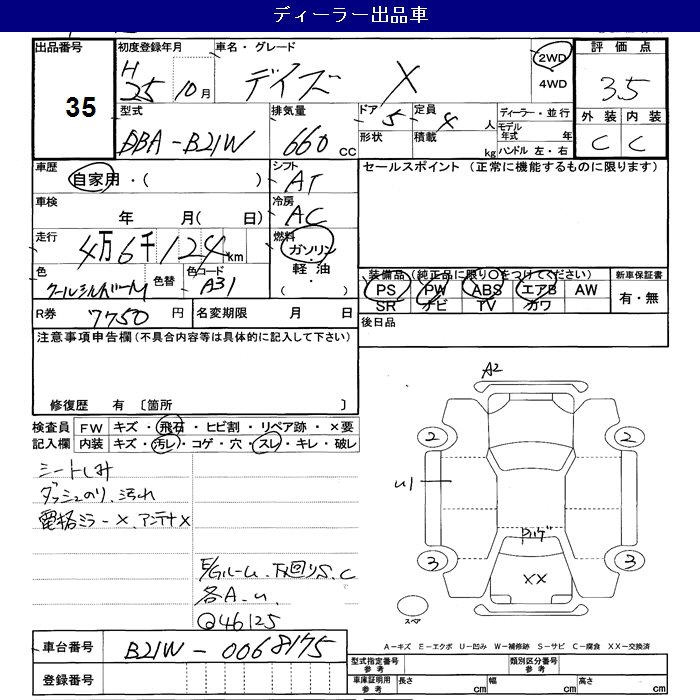 ディーラー出品車
出品番号 35
初度登録年月 H25 10月
車名・グレード デイズ X
2WD
4WD
評価点 3.5
外装 C 内装 C
型式 DBA-B21W
排気量 660 CC
ドア 5
形状
定員 4 人
積載 kg
ディーラー・並行
モデル年式 年
ハンドル 左・右
車歴 自家用・( )
シフト AT
セールスポイント (正常に機能するものに限ります)
車検 年 月( 日)
冷房 AC
走行 4万6千124km
燃料 ガソリン・軽油 ( ・ )
色 クールシルバーM
色替
色コード A31
装備品 (純正品に限り○をつけてください)
PS PW ABS エアB AW
SR ナビ TV カワ
新車保証書 有・無
R券 7750 円
名変期限 月 日
後日品
注意事項申告欄(不具合内容等は具体的に記入して下さい)
修復歴 有 〔箇所 〕
検査員記入欄
FW キズ・飛石・ヒビ割・リペア跡・×要
内装 キズ・汚レ・コゲ・穴・スレ・キレ・破レ
シートしみ
ダッシュのり、汚れ
電格ミラーX、アンテナX
E/Gルーム、下回りS、C
各A、u
@46125
A2
2 2
u1
ハゲ
3 3
XX
スペア
A-キズ E-エクボ U-凹み W-補修跡 S-サビ C-腐食 XX-交換済
車台番号 B21W-0068175
登録番号
型式指定番号 参考
類別区分番号 参考
車庫証明用 参考
長さ cm 幅 cm 高さ cm